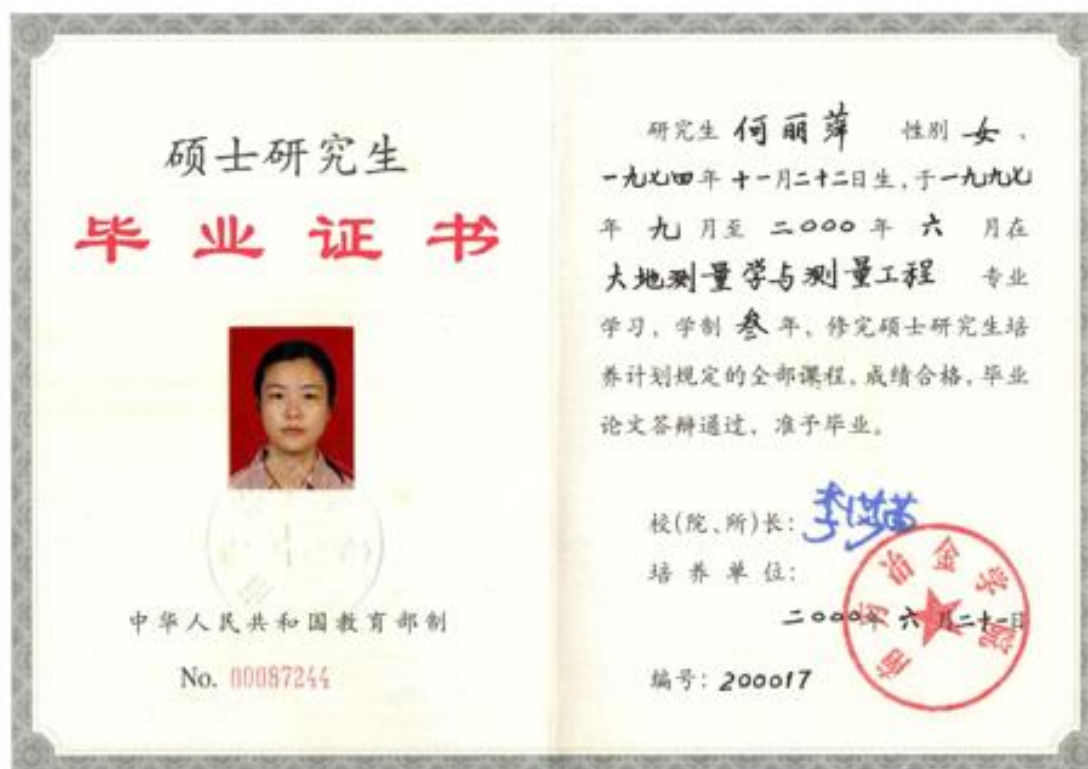 硕士研究生
毕业证书
中华人民共和国教育部制
No. 00087244
研究生 何丽萍 性别 女 、
一九七四年 十一月二十二日生,于一九九七
年 九 月至 二000 年 六 月在
大地测量学与测量工程 专业
学习,学制 叁 年,修完硕士研究生培
养计划规定的全部课程,成绩合格,毕业
论文答辩通过,准予毕业。
校(院、所)长:
培养单位:
南方冶金学院
二000年 六 月二十一日
编号: 200017